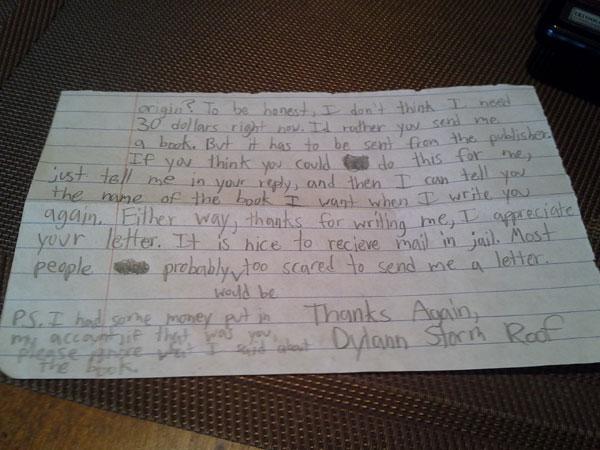 origin? To be honest, I don't think I need
30 dollars right now. I'd rather you send me
a book. But it has to be sent from the publisher.
If you think you could do this for me,
just tell me in your reply, and then I can tell you
the name of the book I want when I write you
again. Either way, thanks for writing me, I appreciate
your letter. It is nice to recieve mail in jail. Most
people probably too scared to send me a letter.
would be
P.S. I had some money put in
my account, if that was you,
please ignore what I said about
the book.
Thanks Again,
Dylann Storm Roof